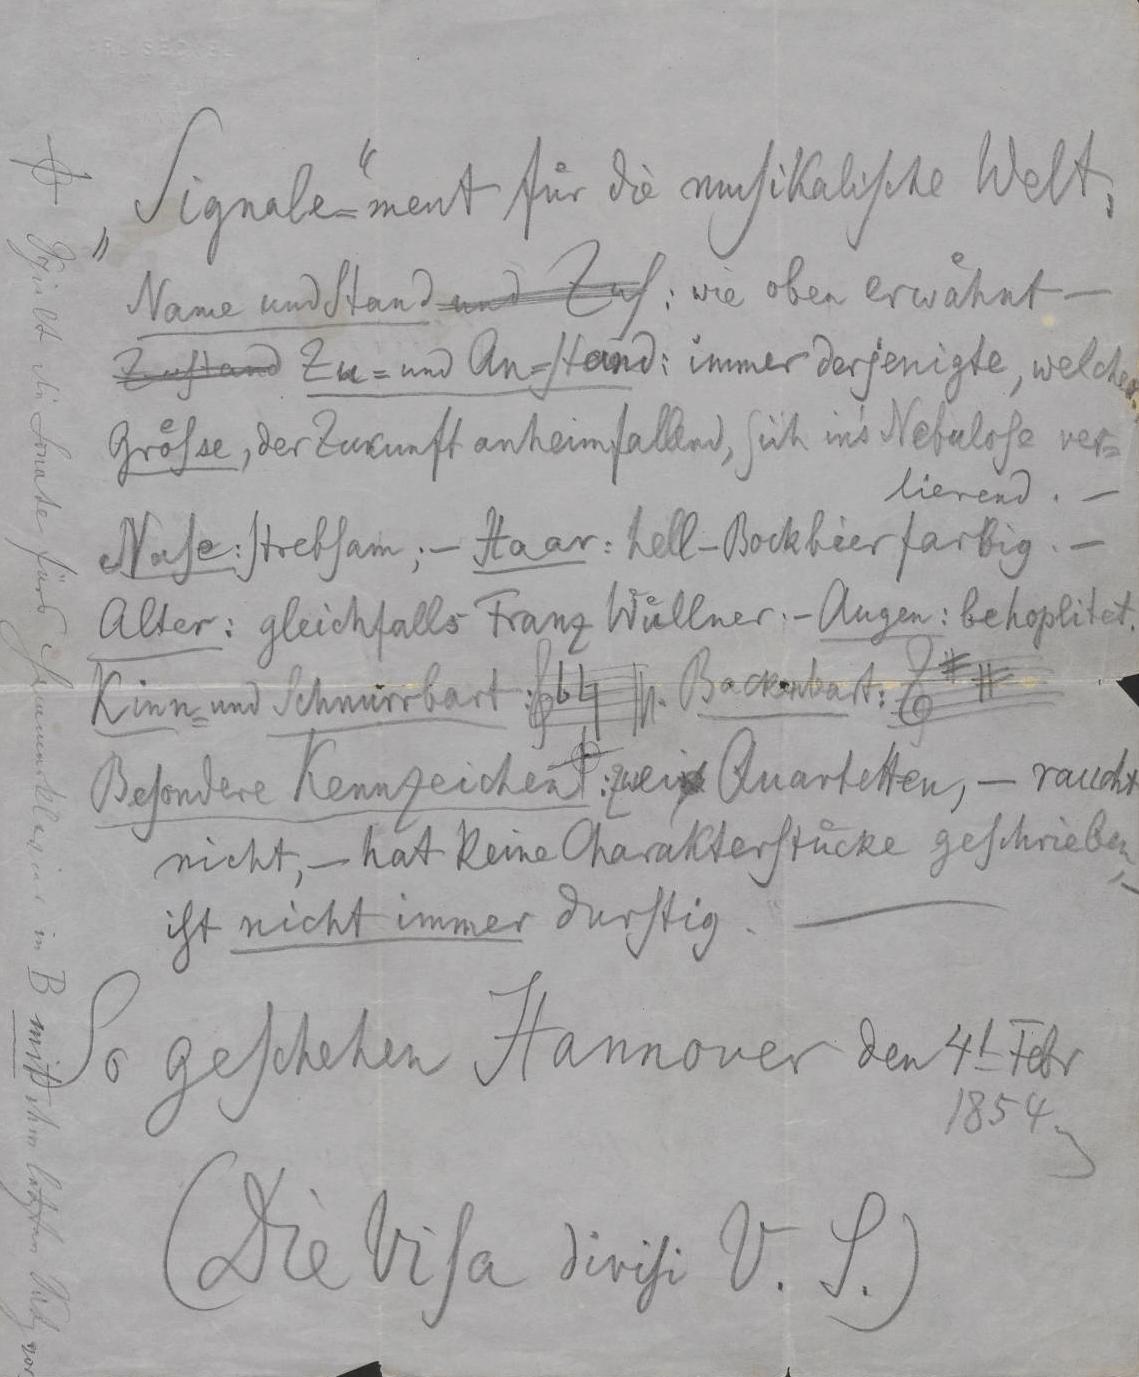 „Signale=“ment für die musikalische Welt,
Name und Stand und Zus: wie oben erwähnt —
Zustand Zu= und An=stand: immer derjenigte, welcher.
Größe, der Zukunft anheimfallend, sich in's Nebulose ver=
lierend. —
Nase: strebsam; — Haar: hell-Bockbierfarbig. —
Alter: gleichfalls Franz Wüllner. — Augen: behoplitet.
Kinn= und Schnurrbart: Backenbart:
Besondere Kennzeichen: zwei Quartetten, — raucht
nicht, — hat keine Charakterstücke geschrieben, —
ist nicht immer durstig. —
So geschehen Hannover den 4t Febr
1854
(Die Visa divisi V. S.)
Spielt die Sonate fürs Hammerklavier in B mit ihm letzten Satz vor.
CARL SECKEL